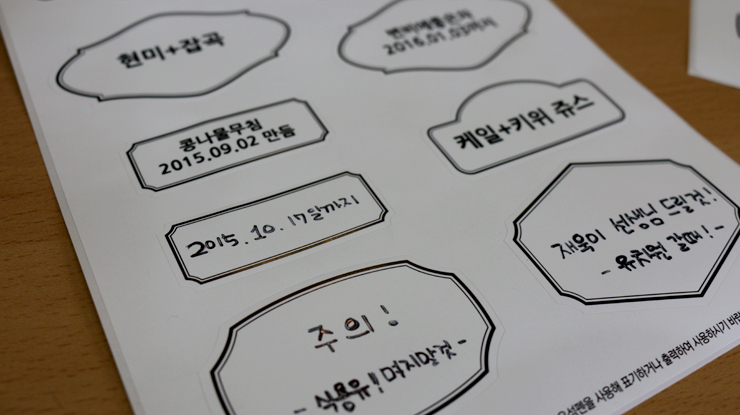 현미+잡곡
변비예방은차
2016.01.03까지
콩나물무침
2015.09.02 만듬
케일+키위 쥬스
2015.10.17날까지
재욱이 선생님 드릴것!
- 유치원 갈때! -
주의!
- 식용유! 먹지말것 -
유성펜을 사용해 표기하거나 출력하여 사용하시기 바랍